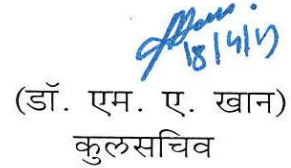 18/4/17
(डॉ. एम. ए. खान)
कुलसचिव